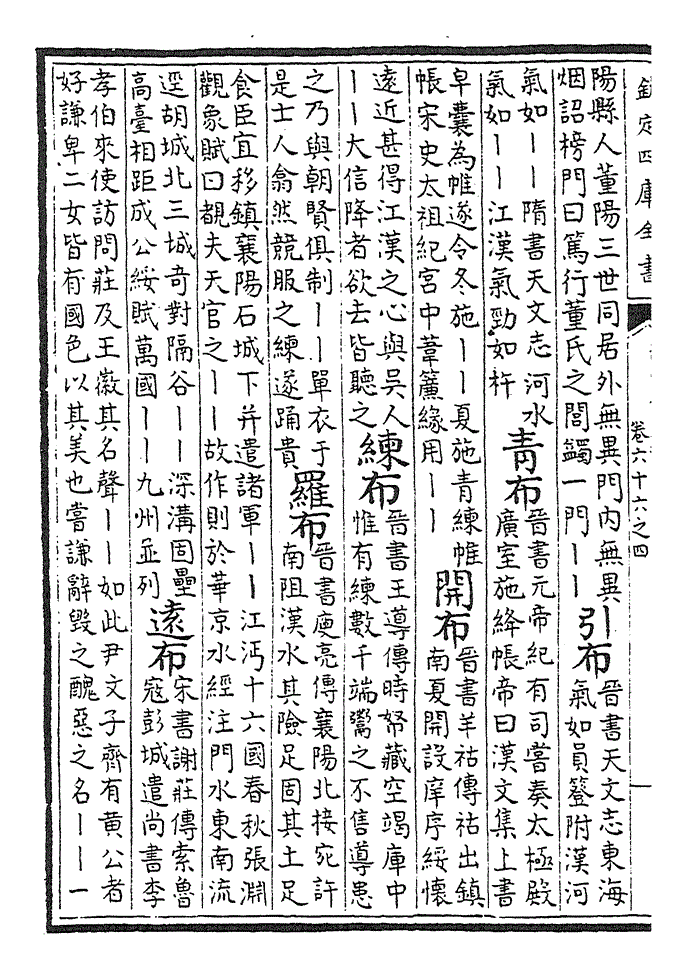 欽定四庫全書
卷六十六之四
陽縣人董陽三世同居外無異門內無異
烟詔榜門曰篤行董氏之閭蠲一門丨丨
引布
晉書天文志東海
氣如員簦附漢河
氣如丨丨隋書天文志河水
氣如丨丨江漢氣勁如杵
青布
晉書元帝紀有司嘗奏太極殿
廣室施絳帳帝曰漢文集上書
皁囊為帷遂令冬施丨丨夏施青練帷
帳宋史太祖紀宮中葦簾緣用丨丨
開布
晉書羊祜傳祜出鎮
南夏開設庠序綏懷
遠近甚得江漢之心與吳人
丨丨大信降者欲去皆聽之
練布
晉書王導傳時帑藏空竭庫中
惟有練數千端鬻之不售導患
之乃與朝賢俱制丨丨單衣于
是士人翕然競服之練遂踊貴
羅布
晉書庾亮傳襄陽北接宛許
南阻漢水其險足固其土足
食臣宜移鎮襄陽石城下并遣諸軍丨丨江沔十六國春秋張淵
觀象賦曰覩夫天官之丨丨故作則於華京水經注門水東南流
逕胡城北三城奇對隔谷丨丨深溝固壘
高臺相距成公綏賦萬國丨丨九州並列
遠布
宋書謝莊傳索魯
寇彭城遣尚書李
孝伯來使訪問莊及王徽其名聲丨丨如此尹文子齊有黃公者
好謙卑二女皆有國色以其美也嘗謙辭毀之醜惡之名丨丨一